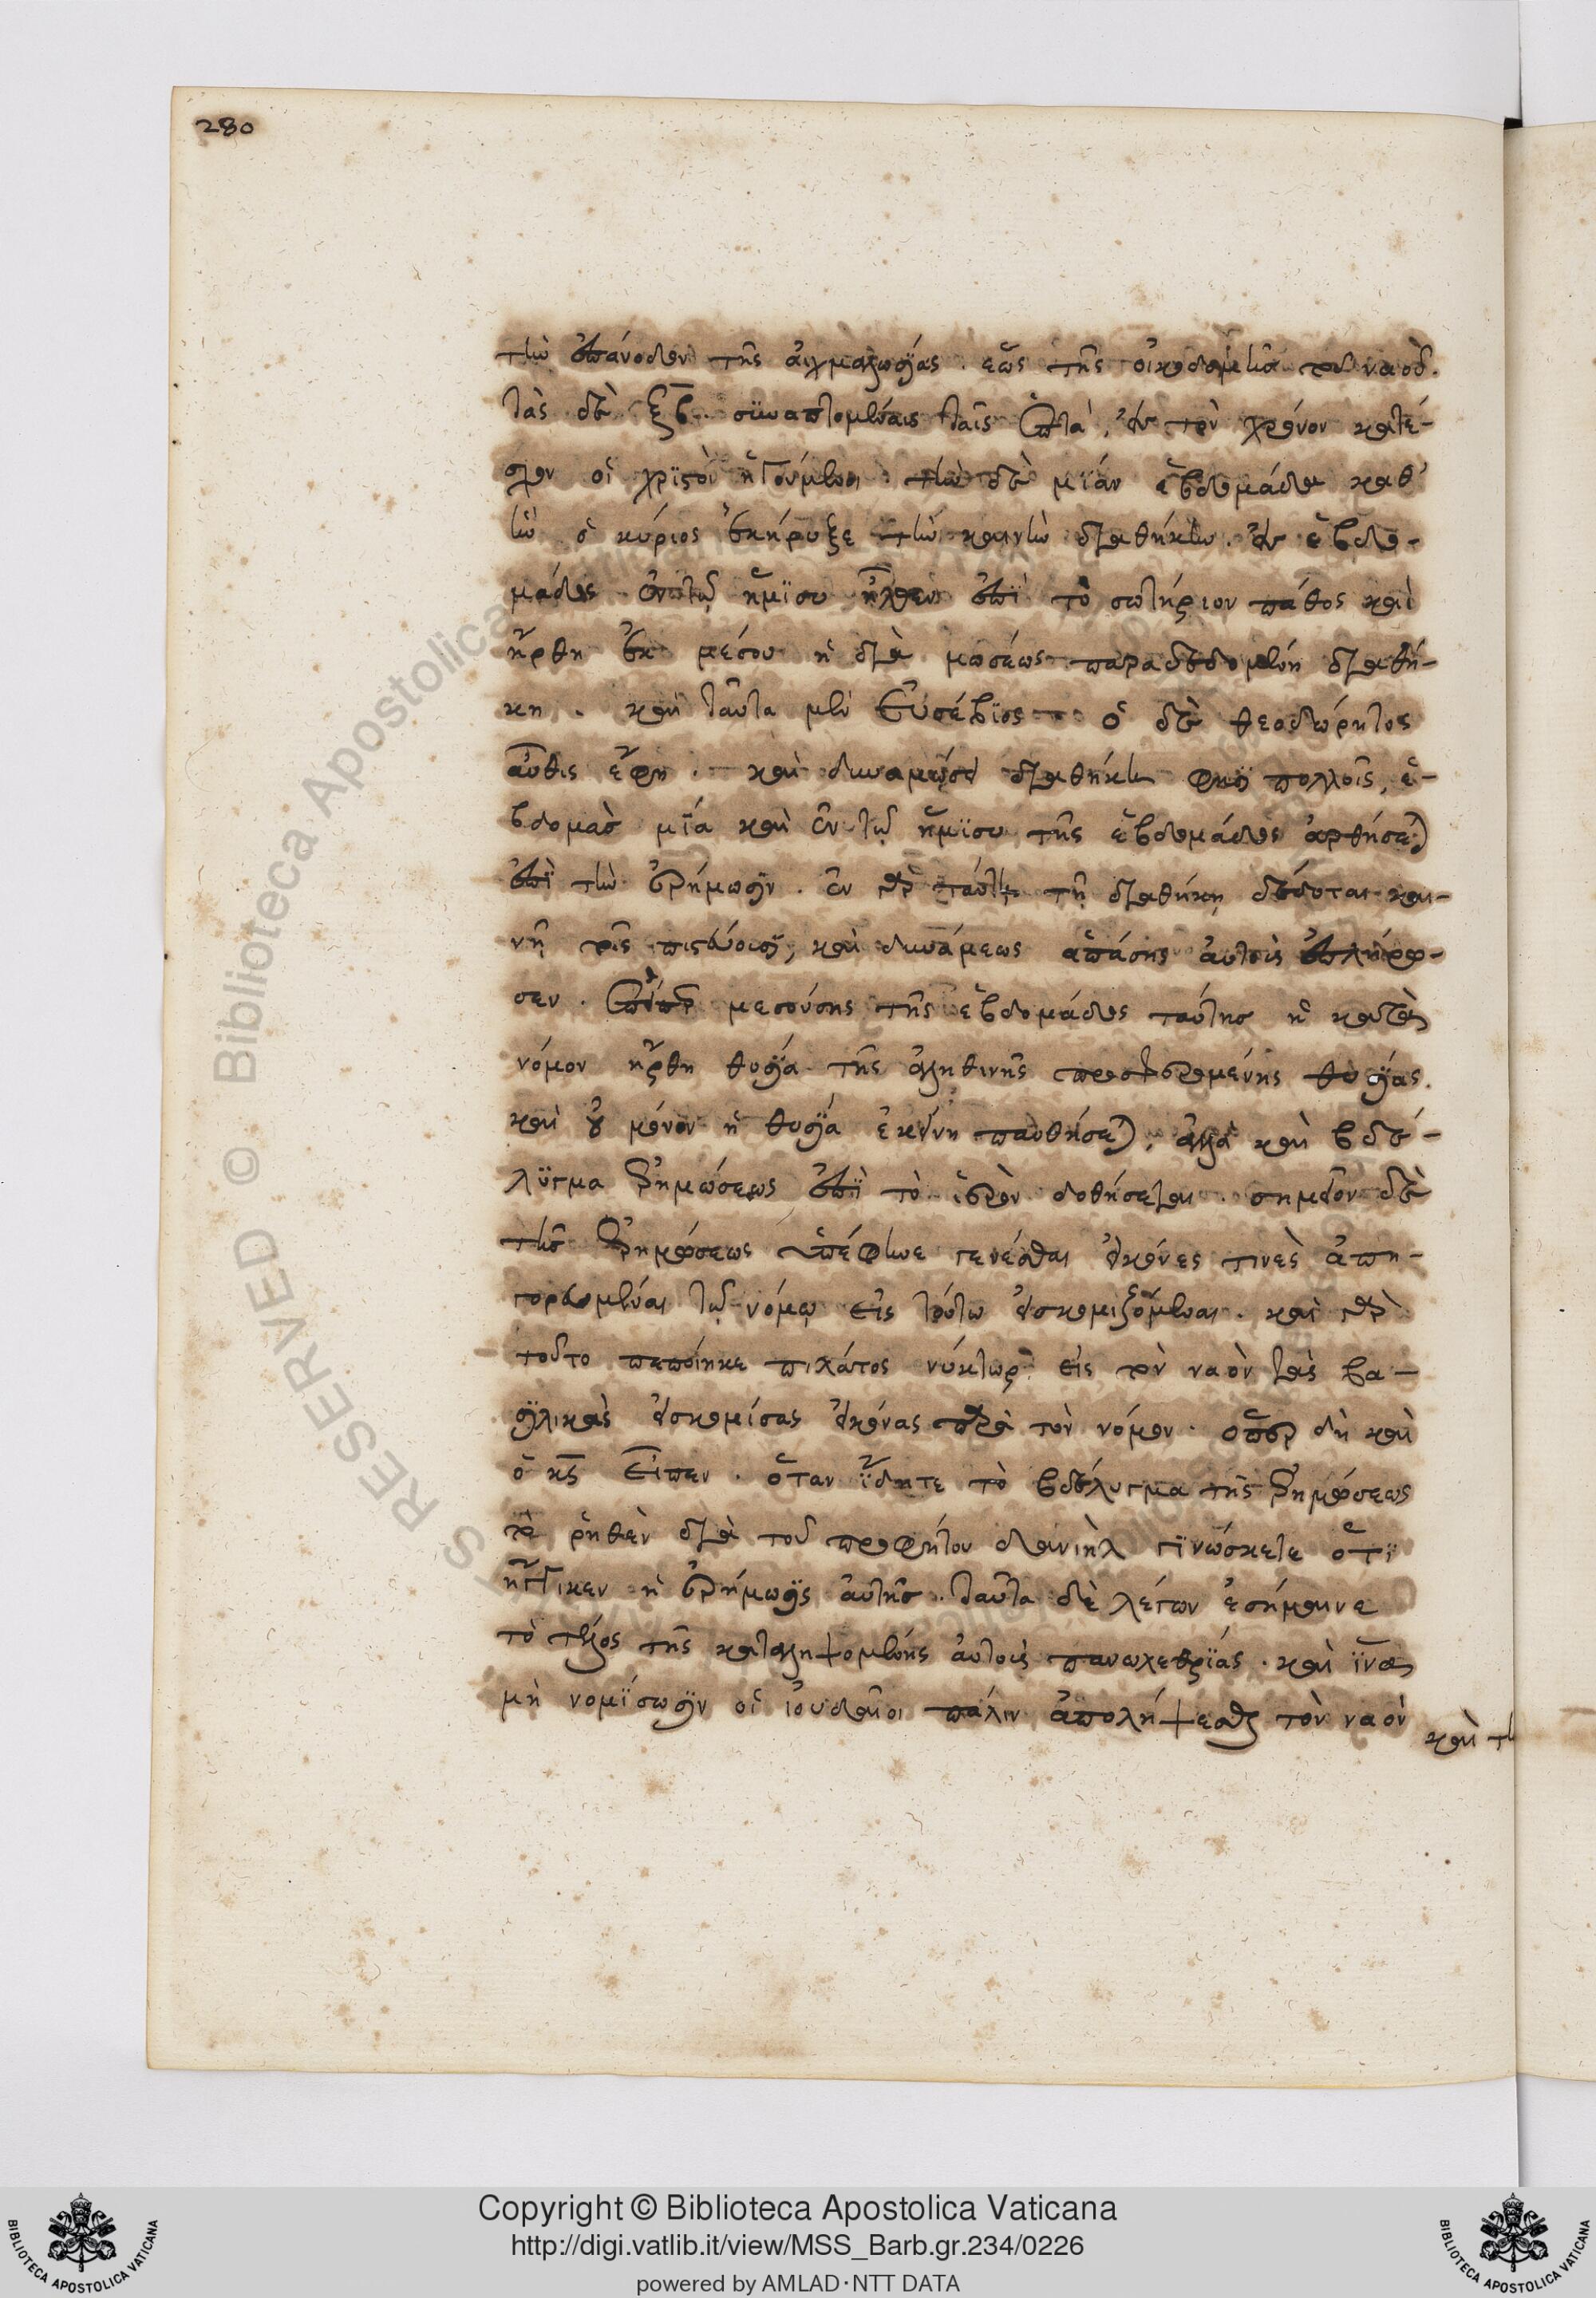 280
τὴν ἐπάνοδον τῆς αἰχμαλωσίας. ἕως τῆς οἰκοδομὴν τοῦ ναοῦ.
τὰς δὲ ξβ. συναπτομέναις ταῖς ἑπτὰ, εἰς τὸν χρόνον κατέ-
σχον οἱ χριστοὶ ἡγούμενοι. τὴν δὲ μΐαν ἑβδομάδα καθ'
ἣν ὁ κύριος ἐκήρυξε τὴν καινὴν διαθήκην. εἰς ἑβδο-
μάδος ἐν τῷ ἥμϊσυ ἦλθεν ἐπῒ τὸ σωτήριον πάθος καὶ
ἤρθη ἐκ μέσου ἡ διὰ μωσέως παραδεδομένη διαθή-
κη. καὶ ταῦτα μὲν Εὐσέβϊος ὁ δὲ θεοδώρητος
αὖθις ἔφη. καὶ δυναμώσει διαθήκην φησῒ πολλοῖς, ἑ-
βδομὰσ μΐα καὶ ἐν τῷ ἥμϊσυ τῆς ἑβδομάδος ἀρθήσεται
ἐπῒ τὴν ἐρήμωσϊν. ἐν γὰρ ταύτῃ τῇ διαθήκη δέδοται και-
νὴ τοῖς πιστεύουσϊ, καὶ δυνάμεως ἁπάσης αὐτοὺς ἐπλήρω-
σεν. ὥσπερ μεσούσης τῆς ἑβδομάδος ταύτησ ἡ κατὰ
νόμον ἤρθη θυσΐα τῆς ἀληθινῆς προσφερομένης θυσΐας.
καὶ οὐ μόνον ἡ θυσΐα ἐκείνη παυθήσεται, ἀλλὰ καὶ βδέ-
λϋγμα ἐρημώσεως ἐπῒ τὸ ἱερὸν δοθήσεται. σημεῖον δὲ
τῆσ ἐρημώσεως ἀπέφηνε γενέσθαι εἰκόνες τινὲς ἀπη-
γορευμέναι τῷ νόμῳ εἰς τούτω εἰσκομιζόμεναι. καὶ γὰρ
τοῦτο πεποίηκε πιλάτος νύκτωρ εἰς τὸν ναὸν τὰς βα-
σϊλικὰς εἰσκομίσας εἰκόνας παρὰ τὸν νόμον. ὅπερ δὴ καὶ
ὁ κς εἶπεν. ὅταν ἴδητε τὸ βδέλυγμα τῆς ἐρημώσεως
τὸ ῥηθὲν διὰ τοῦ προφήτου δανιὴλ γϊνώσκετε ὅτϊ
ἤγγικεν ἡ ἐρήμωσϊς αὐτῆσ. ταῦτα δὲ λέγων ἐσήμαινε
τὸ τέλος τῆς καταληψομένης αὐτοὺς πανωλεθρΐας. καὶ ἵνα
μὴ νομΐσωσϊν οἱ ἰουδαῖοι πάλιν ἀπολήψεσθαι τὸν ναὸν
καὶ τὴ
Copyright © Biblioteca Apostolica Vaticana
http://digi.vatlib.it/view/MSS_Barb.gr.234/0226
powered by AMLAD·NTT DATA
BIBLIOTECA APOSTOLICA VATICANA
BIBLIOTECA APOSTOLICA VATICANA